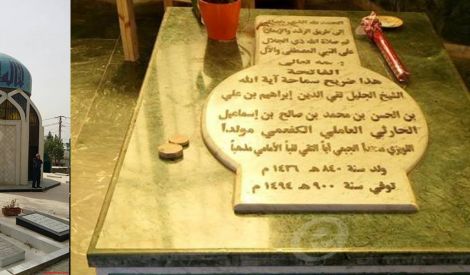 الحمد لله الشهير بفضله
إلى طريق الرشد والإيمان
ثم صلاة الله ذي الجلال
على النبي المصطفى والآل
الفاتحة
هذا ضريح سماحة آية الله
الشيخ الجليل تقي الدين إبراهيم بن علي
بن الحسن بن محمد بن صالح بن إسماعيل
الحارثي العاملي الكفعمي مولداً
اللويزي الجبعي أباً التقي لقباً الأمامي مذهباً
ولد سنة ٨٤٠ هـ ١٤٣٦ م
توفي سنة ٩٠٠ هـ ١٤٩٤ م